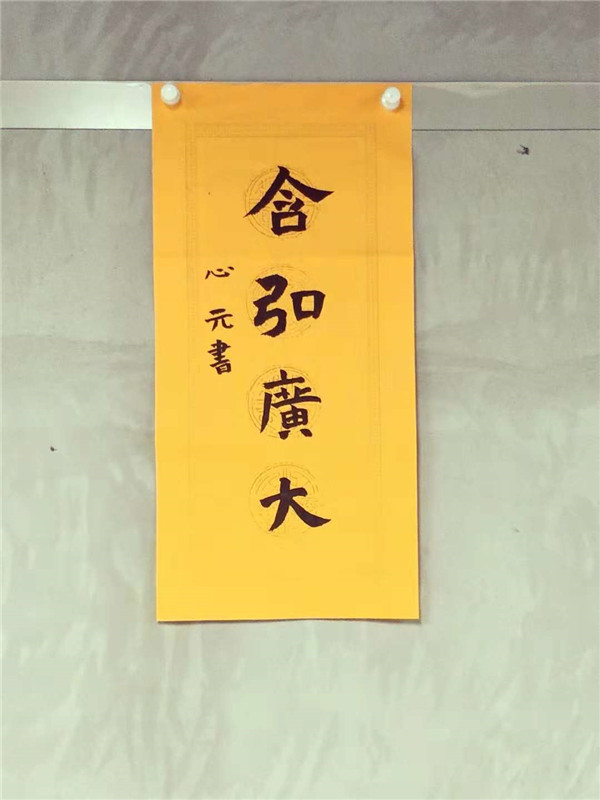 含弘廣大
心元書